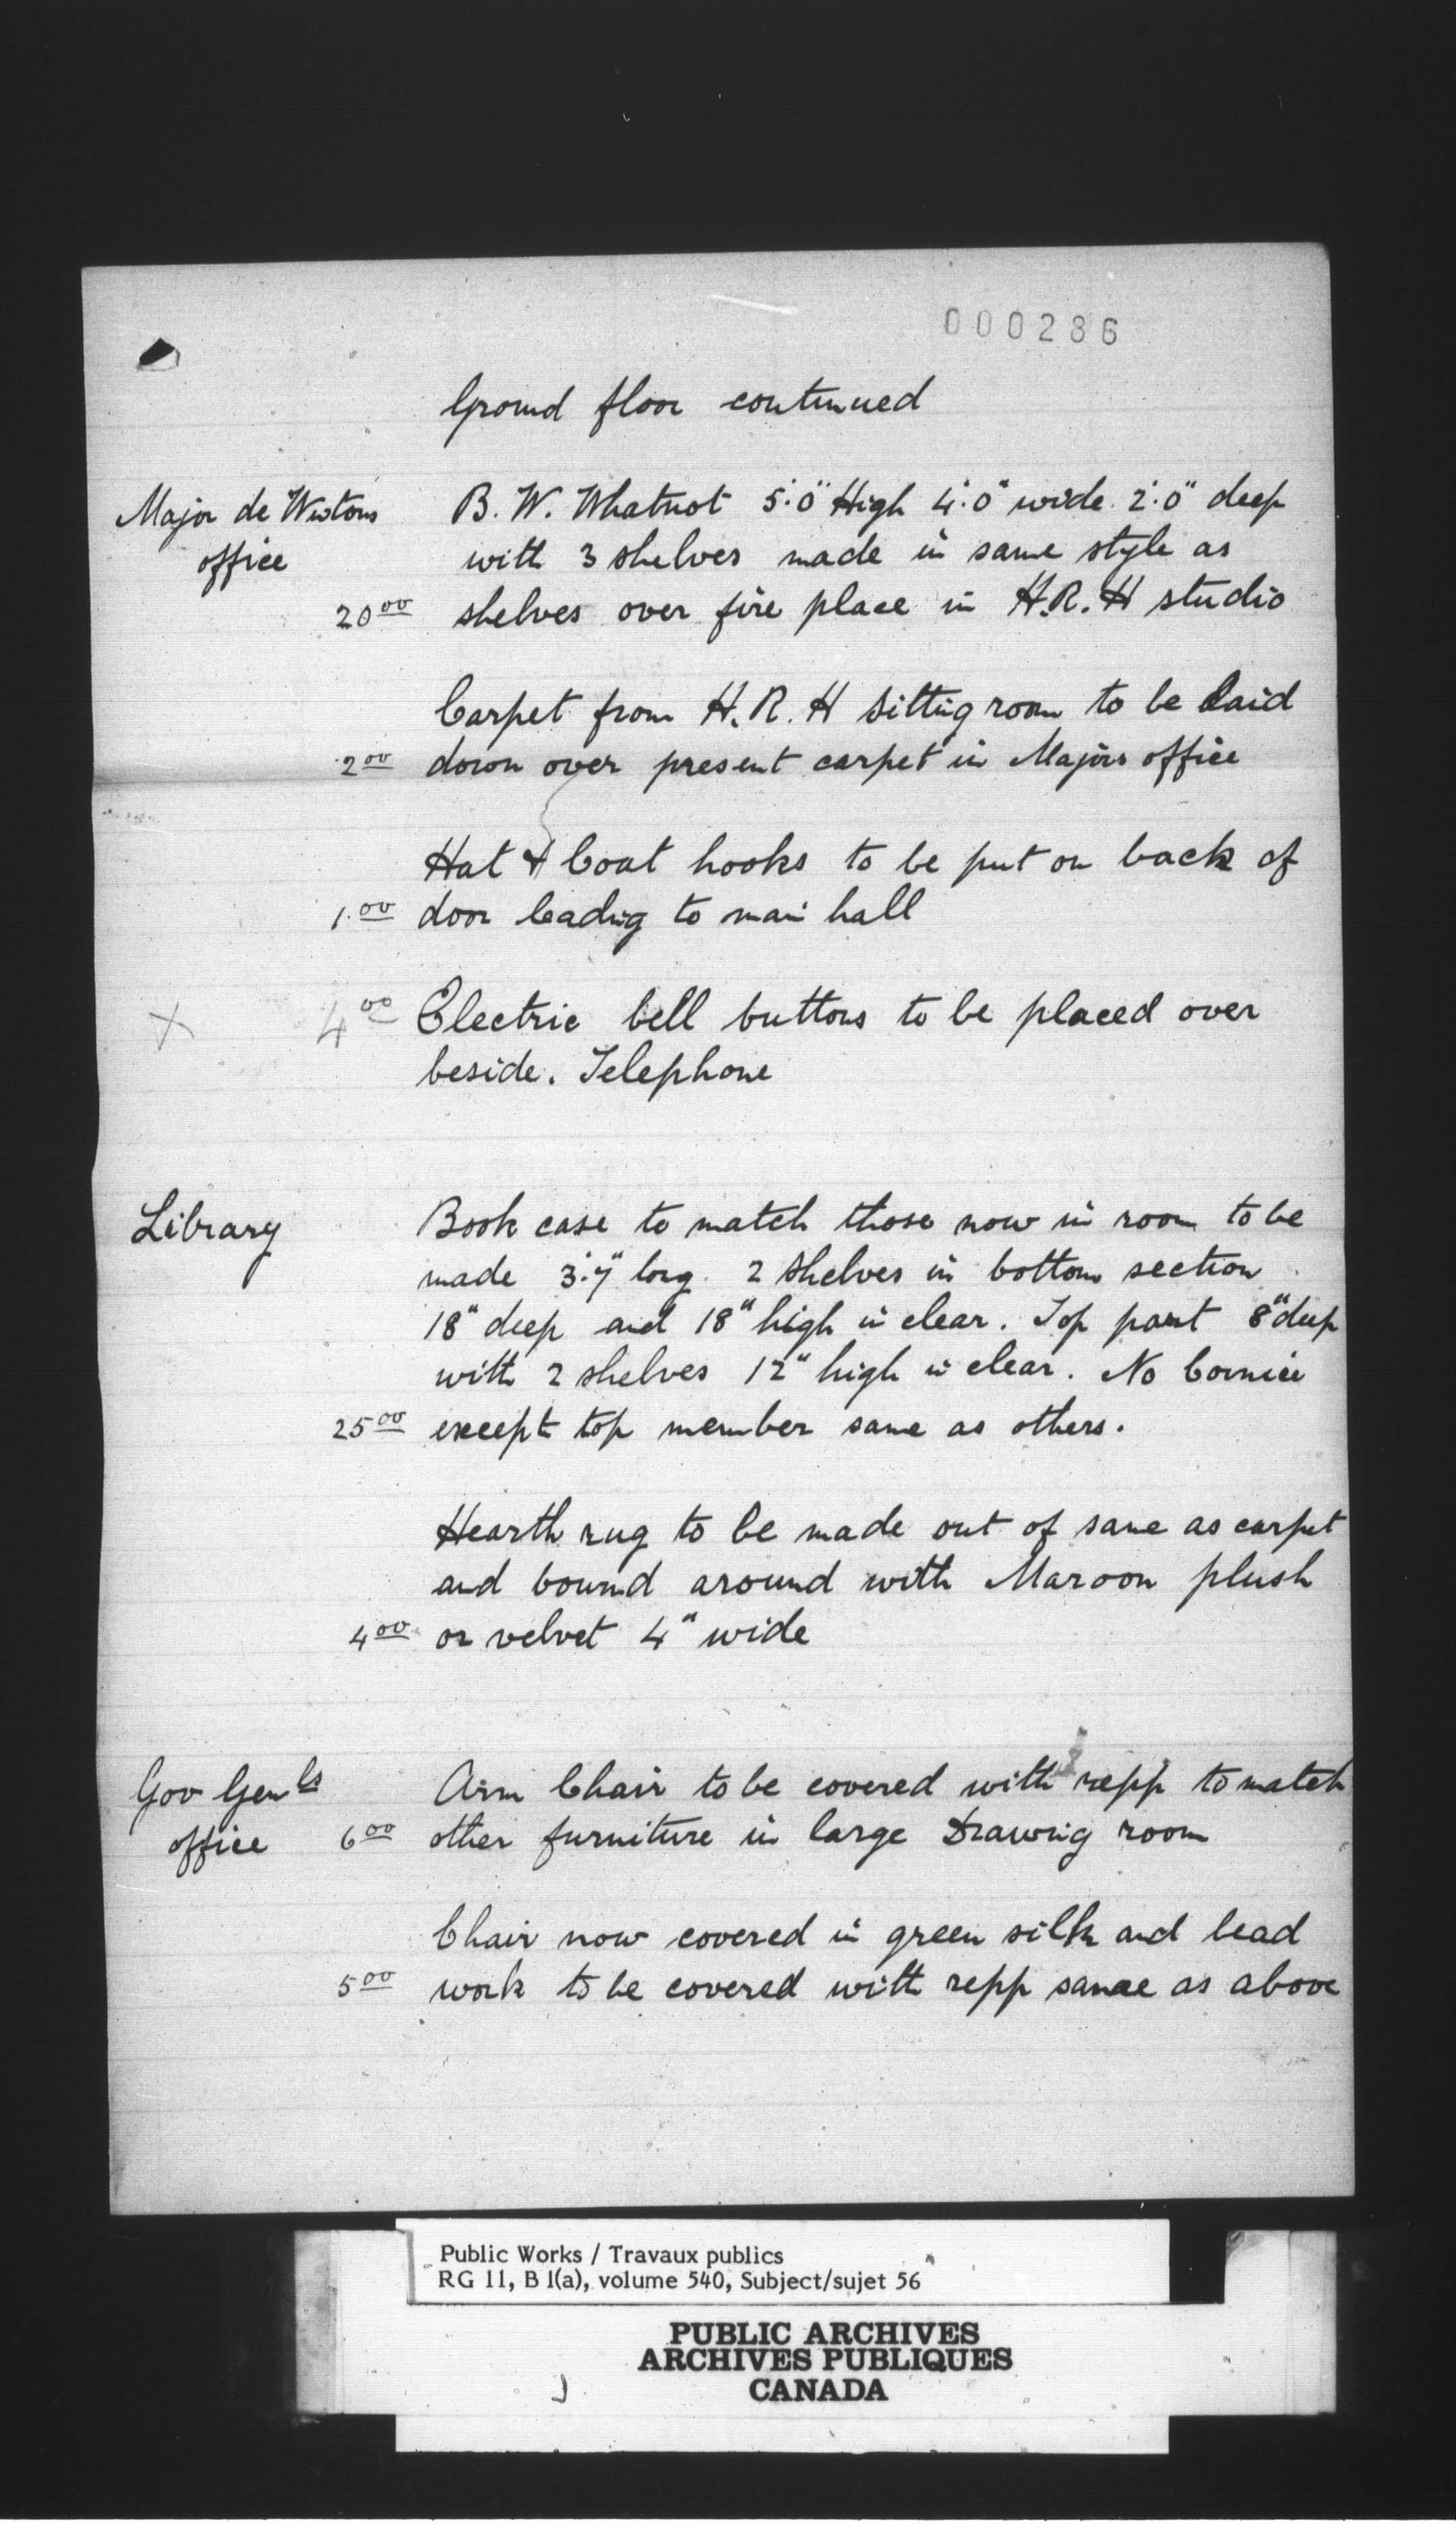 000286
Ground floor continued
Major de Wintons B. W. Whatnot 5'.0" High 4'.0" wide 2'.0" deep
office with 3 shelves made in same style as
20 00 shelves over fire place in H.R.H studio
Carpet from H.R.H sitting room to be laid
2 00 down over present carpet in Majors office
Hat & Coat hooks to be put on back of
1.00 door leading to main hall
X 4 00 Electric bell buttons to be placed over
beside. Telephone
Library Book case to match those now in room to be
made 3'.7" long. 2 shelves in bottom section
18" deep and 18" high in clear. Top part 8" deep
with 2 shelves 12" high in clear. No Cornice
25 00 except top member same as others.
Hearth rug to be made out of same as carpet
and bound around with Maroon plush
4 00 or velvet 4" wide
Gov Genls Arm Chair to be covered with repp to match
office 6 00 other furniture in large Drawing room
Chair now covered in green silk and bead
5 00 work to be covered with repp same as above
Public Works / Travaux publics
RG 11, B 1(a), volume 540, Subject/sujet 56
PUBLIC ARCHIVES
ARCHIVES PUBLIQUES
CANADA